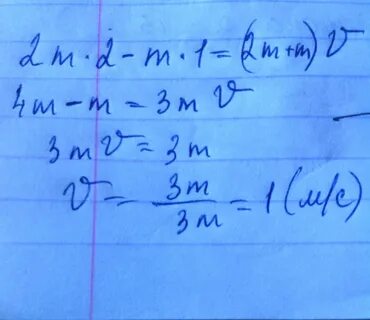 2m·2-m·1=(2m+m)V
4m-m=3mV
3mV=3m
V=3m/3m=1(м/с)